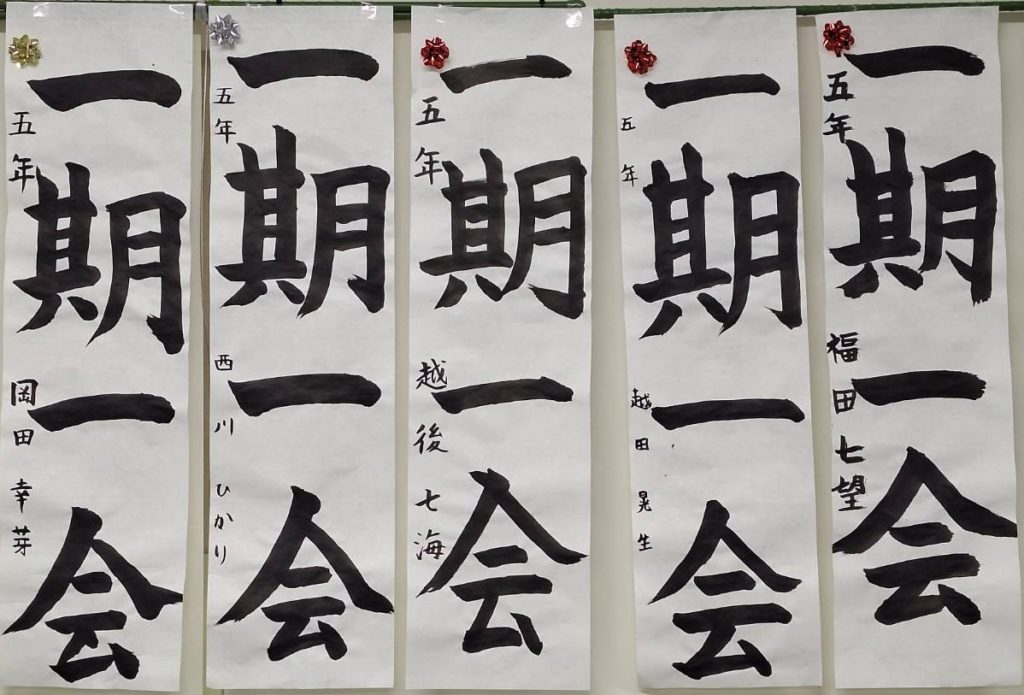 一期一会
五年 岡田 幸芽
一期一会
五年 西川 ひかり
一期一会
五年 越後 七海
一期一会
五年 越田 晃生
一期一会
五年 福田 七望